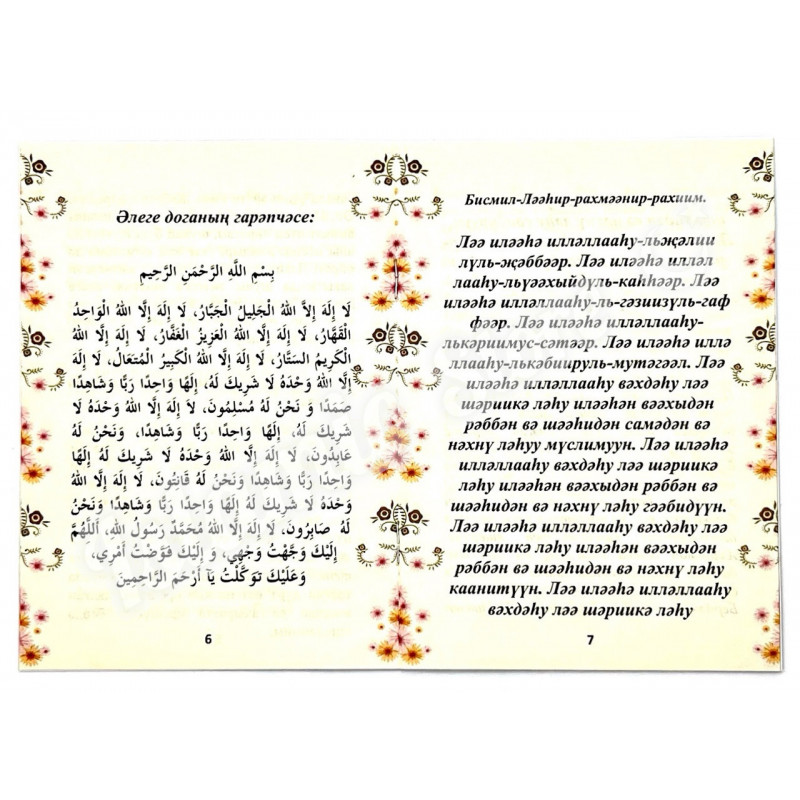 Әлеге доганың гарәпчәсе:
بِسْمِ اللَّهِ الرَّحْمَنِ الرَّحِيمِ
لَا إِلَهَ إِلاَّ اللهُ الْجَلِيلُ الْجَبَّارُ، لَا إِلَهَ إِلَّا اللهُ الْوَاحِدُ
الْقَهَّارُ، لَا إِلَهَ إِلَّا اللهُ الْعَزِيزُ الْغَفَّارُ، لَا إِلَهَ إِلَّا اللهُ
الْكَرِيمُ السَّتَّارُ، لَا إِلَهَ إِلَّا اللهُ الْكَبِيرُ الْمُتَعَالُ، لَا إِلَهَ
إِلَّا اللهُ وَحْدَهُ لَا شَرِيكَ لَهُ، إِلَهًا وَاحِدًا رَبًّا وَشَاهِدًا
صَمَدًا وَ نَحْنُ لَهُ مُسْلِمُونَ، لَا إِلَهَ إِلَّا اللهُ وَحْدَهُ لَا
شَرِيكَ لَهُ، إِلَهًا وَاحِدًا رَبًّا وَشَاهِدًا، وَنَحْنُ لَهُ
عَابِدُونَ، لَا إِلَهَ إِلَّا اللهُ وَحْدَهُ لَا شَرِيكَ لَهُ إِلَهًا
وَاحِدًا رَبًّا وَشَاهِدًا وَنَحْنُ لَهُ قَانِتُونَ، لَا إِلَهَ إِلَّا اللهُ
وَحْدَهُ لَا شَرِيكَ لَهُ إِلَهًا وَاحِدًا رَبًّا وَشَاهِدًا وَنَحْنُ
لَهُ صَابِرُونَ، لَا إِلَهَ إِلَّا اللهُ مُحَمَّدٌ رَسُولُ اللهِ، اَللَّهُمَّ
إِلَيْكَ وَجَّهْتُ وَجْهِي، وَ إِلَيْكَ فَوَّضْتُ أَمْرِي،
وَعَلَيْكَ تَوَكَّلْتُ يَا أَرْحَمَ الرَّاحِمِينَ
6
Бисмил-Ләәһир-рахмәәнир-рахиим.
Ләә иләәһә илләллааһу-льҗәлии
лүль-җәббәәр. Ләә иләәһә илләл
лааһу-льүәәхыйдүль-каһһәәр. Ләә
иләәһә илләллааһу-ль-гәзиизүль-гаф
фәәр. Ләә иләәһә илләллааһу-
лькәриимус-сәтәәр. Ләә иләәһә иллә
ллааһу-лькәбиируль-мутәгәәл. Ләә
иләәһә илләллааһу вәхдәһу ләә
шәриикә ләһу иләәһән вәәхыдән
рәббән вә шәәһидән самәдән вә
нәхнү ләһуу мүслимуун. Ләә иләәһә
илләллааһу вәхдәһу ләә шәриикә
ләһу иләәһән вәәхыдән рәббән вә
шәәһидән вә нәхнү ләһу гәәбидүүн.
Ләә иләәһә илләллааһу вәхдәһу ләә
шәриикә ләһу иләәһән вәәхыдән
рәббән вә шәәһидән вә нәхнү ләһу
каанитүүн. Ләә иләәһә илләллааһу
вәхдәһу ләә шәриикә ләһу
7